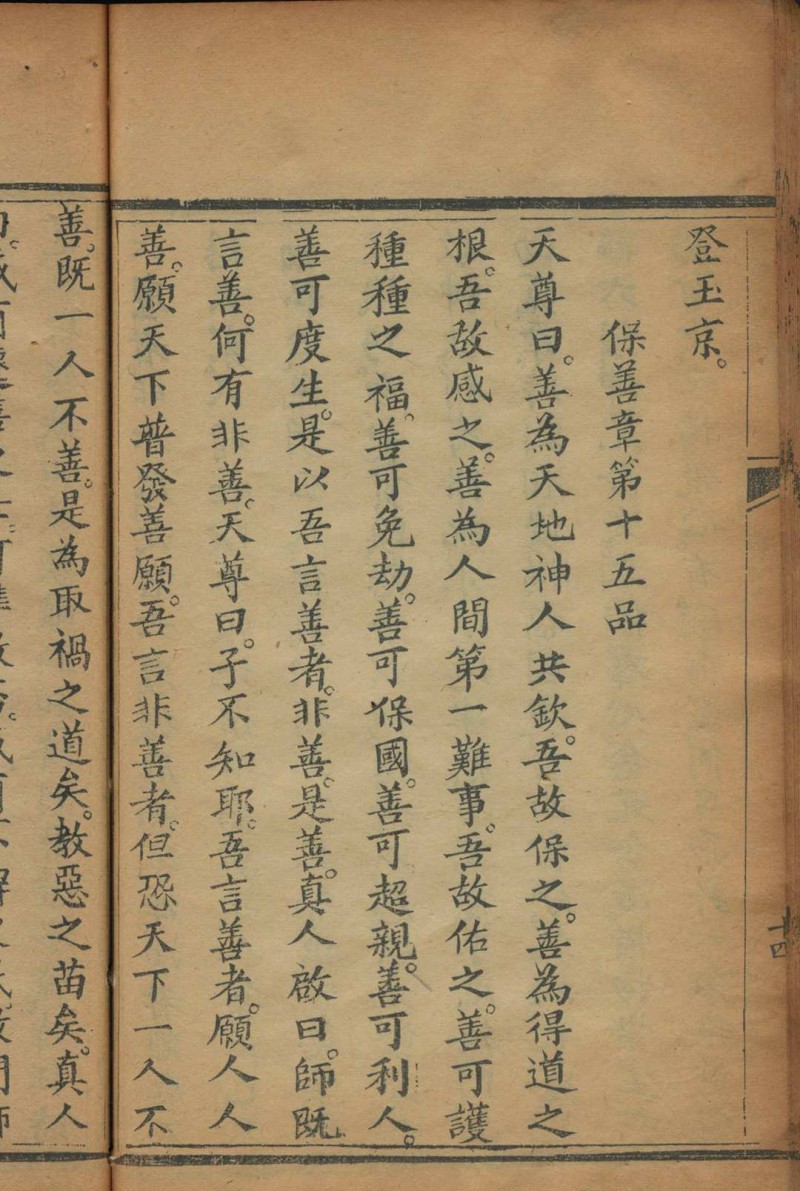 登玉京。
保善章第十五品
天尊曰。善為天地神人共欽。吾故保之。善為得道之
根。吾故感之。善為人間第一難事。吾故佑之。善可護
種種之福。善可免劫。善可保國。善可超親。善可利人。
善可度生。是以吾言善者。非善。是善。真人啟曰。師既
言善。何有非善。天尊曰。子不知耶。吾言善者。願人人
善。願天下普發善願。吾言非善者。但恐天下一人不
善。既一人不善。是為取禍之道矣。教惡之苗矣。真人
十四